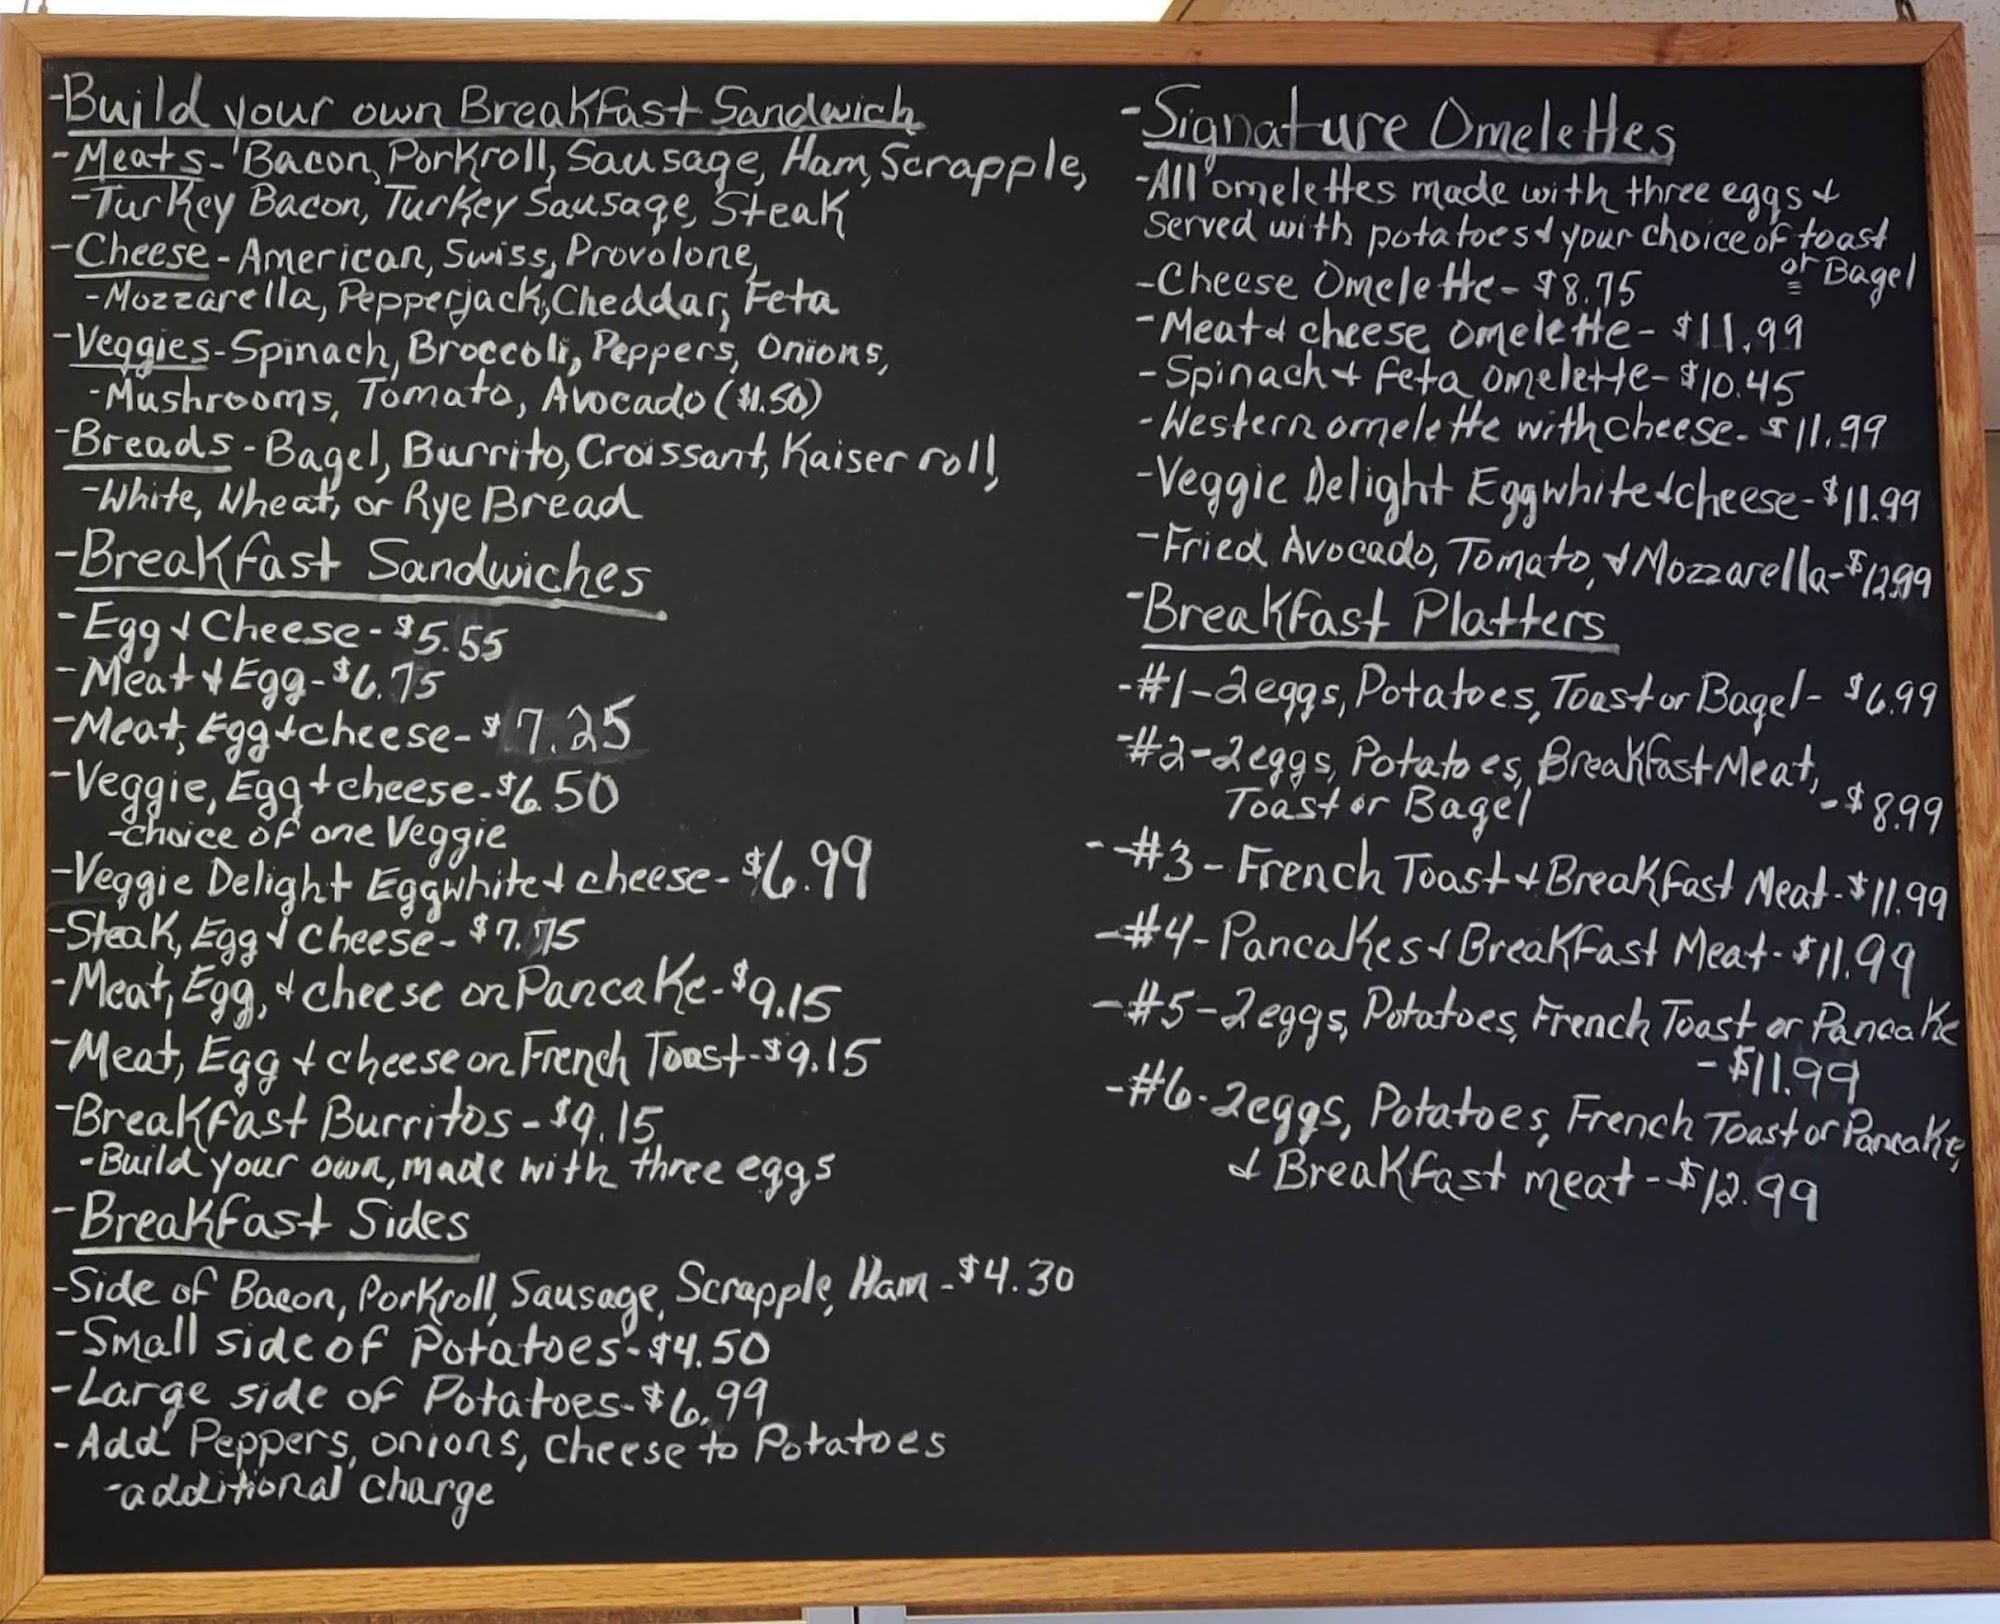 -Build your own Breakfast Sandwich
-Meats- Bacon, Porkroll, Sausage, Ham, Scrapple,
-Turkey Bacon, Turkey Sausage, Steak
-Cheese-American, Swiss, Provolone,
-Mozzarella, Pepperjack, Cheddar, Feta
-Veggies-Spinach, Broccoli, Peppers, Onions,
-Mushrooms, Tomato, Avocado ($1.50)
-Breads-Bagel, Burrito, Croissant, Kaiser roll,
-White, Wheat, or Rye Bread
-Breakfast Sandwiches
-Egg & Cheese-$5.55
-Meat & Egg-$6.75
-Meat, Egg & cheese-$7.25
-Veggie, Egg + cheese-$6.50
-choice of one Veggie
-Veggie Delight Eggwhite & cheese-$6.99
-Steak, Egg & cheese-$7.75
-Meat, Egg, & cheese on Pancake-$9.15
-Meat, Egg & cheese on French Toast-$9.15
-Breakfast Burritos-$9.15
-Build your own, made with three eggs
-Breakfast Sides
-Side of Bacon, Porkroll, Sausage, Scrapple, Ham-$4.30
-Small side of Potatoes-$4.50
-Large side of Potatoes-$6.99
-Add Peppers, onions, cheese to Potatoes
-additional charge
-Signature Omelettes
-All omelettes made with three eggs &
served with potatoes & your choice of toast
or Bagel
-Cheese Omelette-$8.75
-Meat & cheese omelette-$11.99
-Spinach & feta omelette-$10.45
-Western omelette with cheese-$11.99
-Veggie Delight Eggwhite & cheese-$11.99
-Fried Avocado, Tomato, & Mozzarella-$12.99
-Breakfast Platters
-#1-2eggs, Potatoes, Toast or Bagel-$6.99
-#2-2eggs, Potatoes, Breakfast Meat,
Toast or Bagel -$8.99
--#3-French Toast & Breakfast Meat-$11.99
-#4-Pancakes & Breakfast Meat-$11.99
-#5-2eggs, Potatoes, French Toast or Pancake
-$11.99
-#6-2eggs, Potatoes, French Toast or Pancake,
& Breakfast meat-$12.99